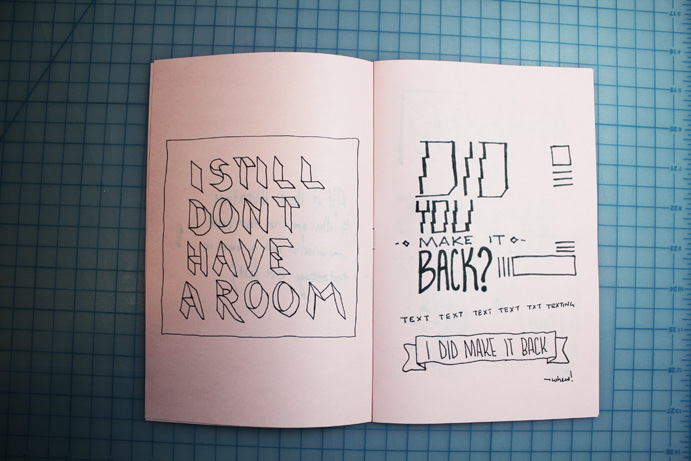 I STILL
DONT
HAVE
A ROOM
DID
YOU
MAKE IT
BACK?
TEXT TEXT TEXT TEXT TXT TEXTING
I DID MAKE IT BACK
—whew!